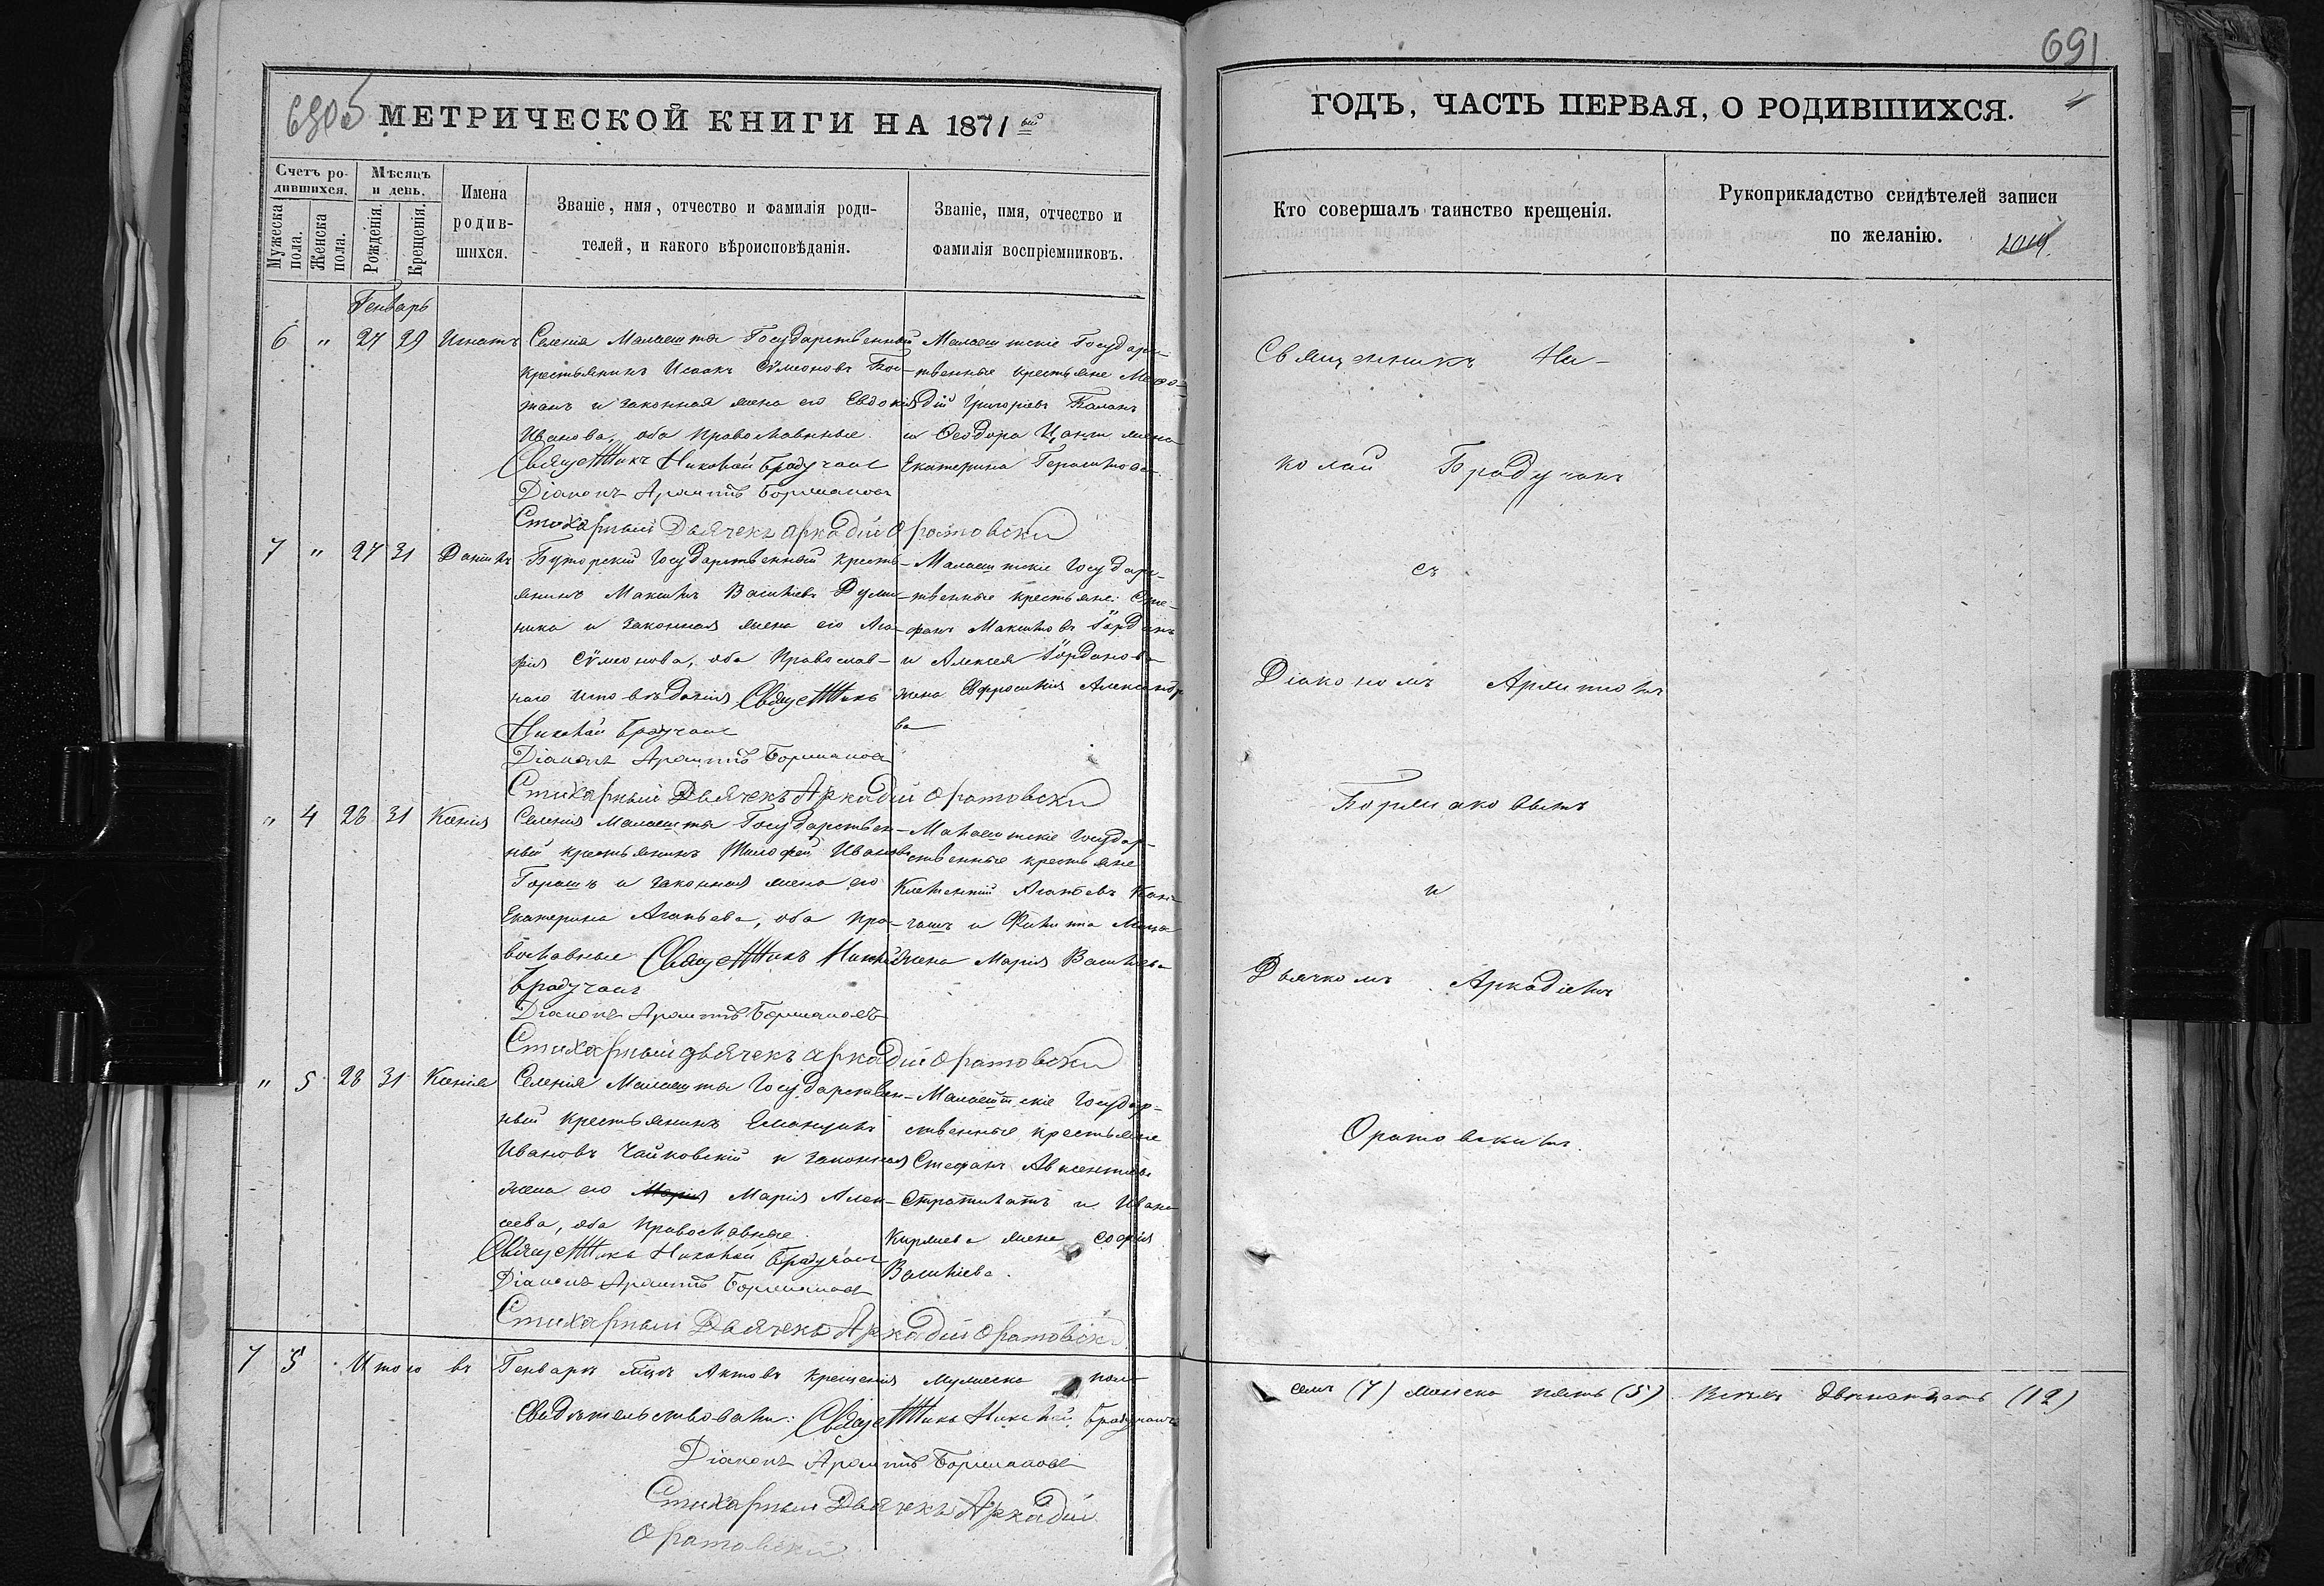 690б
МЕТРИЧЕСКОЙ КНИГИ НА 1871ый
Счетъ ро-
дившихся.
Мужеска пола.
Женска пола.
Мѣсяцъ
и день.
Рожденія.
Крещенія.
Имена
родив-
шихся.
Званіе, имя, отчество и фамилія роди-
телей, и какого вѣроисповѣданія.
Званіе, имя, отчество и
фамилія воспріемниковъ.
Генварь
6 " 27 29 Игнатъ
Селенія Малаешты Государственный
крестьянинъ Исаакъ Сѷмеоновъ
и законная жена его Евдокія
Иванова, оба православные
Священникъ Николай Брадучанъ
Діаконъ
Стихарный Дьячекъ Аркадій Оратовски
Малаештскіе Государ-
ственные крестьяне
Григоріевъ
и Ѳеодора жена
Екатерина Герасимова
7 " 27 31 Даніилъ
Буторскій Государственный кресть-
янинъ Максимъ Василіевъ Думи-
ника и законная жена его Ага-
фія Сѷмеонова, оба православ-
наго исповѣданія Священникъ
Николай Брадучанъ
Діаконъ
Стихарный Дьячекъ Аркадій Оратовски
Малаештскіе Государ-
ственные крестьяне: Сте-
фанъ Максимовъ Іорданъ
и Алексея Іорданова
жена Евфросинія Александро-
ва
" 4 28 31 Ксенія
Селенія Малаешты Государствен-
ный крестьянинъ Тимофей Ивановъ
и законная жена его
Екатерина Агапьева, оба пра-
вославные Священникъ Николай
Брадучанъ
Діаконъ
Стихарный дьячекъ Аркадій Оратовски
Малаештскіе Государ-
ственные крестьяне
Климентій Агапьевъ
и Филиппа
жена Марія Василіева
" 5 28 31 Ксенія
Селенія Малаешты Государствен-
ный крестьянинъ Емануилъ
Ивановъ Чайковскій и законная
жена его Марія Марія Алек-
сева, оба православные.
Священникъ Николай Брадучанъ
Діаконъ
Стихарный Дьячекъ Аркадій Оратовски
Малаештскіе Государ-
ственные крестьяне
Стефанъ Авксентіевъ
Стратилатъ и Ивана
жена Софія
Василіева.
7 5 Итого въ Генварѣ мцѣ Актовъ крещенія мужеска пола
Свидѣтельствовали: Священникъ Николай Брадучанъ
Діаконъ
Стихарный Дьячекъ Аркадій
Оратовски
691
ГОДЪ, ЧАСТЬ ПЕРВАЯ, О РОДИВШИХСЯ.
Кто совершалъ таинство крещенія.
Рукоприкладство свидѣтелей записи
по желанію.
Священникъ Ни-
колай Брадучанъ
съ
Діакономъ
и
Дьячкомъ Аркадіемъ
Оратовскимъ.
семь (7) женска пять (5). Всѣхъ двѣнатцать (12)